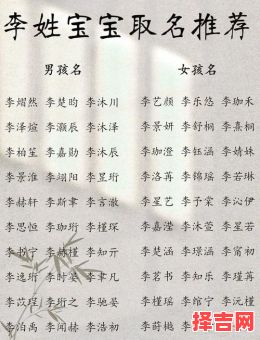 李姓宝宝取名推荐
男孩名 女孩名
李熠然 李楚昀 李沐川 李艺颜 李乐悠 李珈禾
李泽煊 李灏辰 李沐泽 李景妍 李舒桐 李熹桐
李柏笙 李嘉勋 李沐辰 李珈澄 李钰涵 李婧姝
李景淮 李翊阳 李昱珩 李洛苒 李锦瑶 李若琳
李赫轩 李斯聿 李言澈 李星艺 李子棠 李沁伊
李思恒 李珈珩 李槿琛 李嘉滢 李沐萱 李星若
李书宁 李赫槿 李知亓 李楚涵 李璟涵 李甯初
李逸珩 李时晏 李聿凡 李茗书 李知乐 李瑾苒
李苡珵 李珩之 李驰晏 李槿瑶 李绾宁 李沅槿
李泊禹 李闻赫 李浩初 李莳樾
择吉网